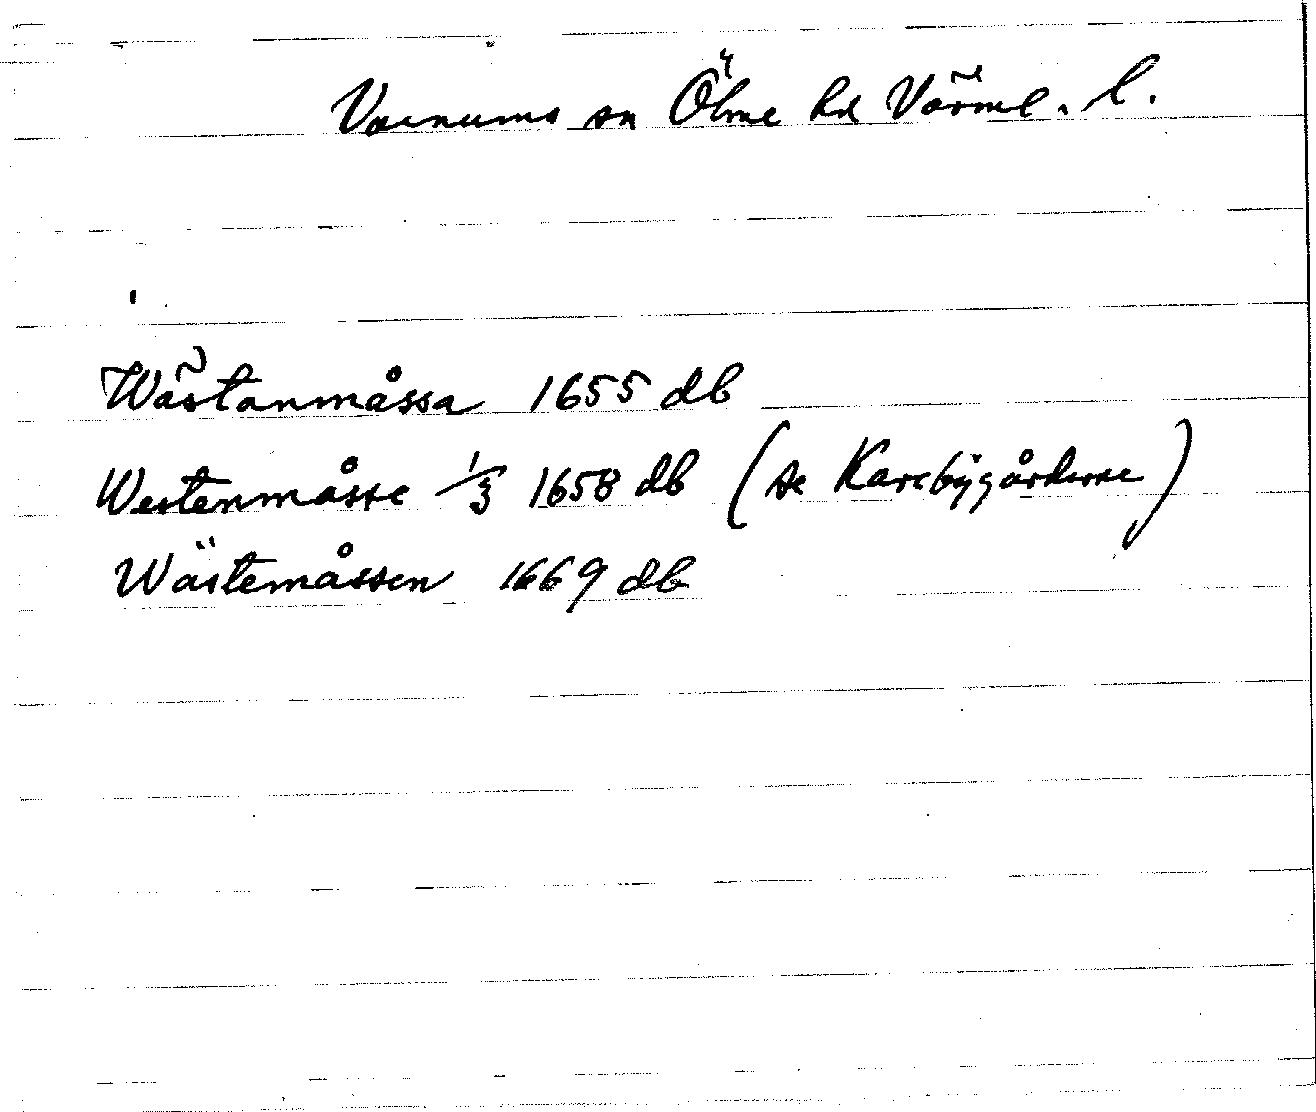 Varnums sn Ölme hd Värml. l.
Wästanmåssa 1655 db
Westenmåsse 1/3 1658 db (se Karebÿgårderne)
Wästemåssen 1669 db